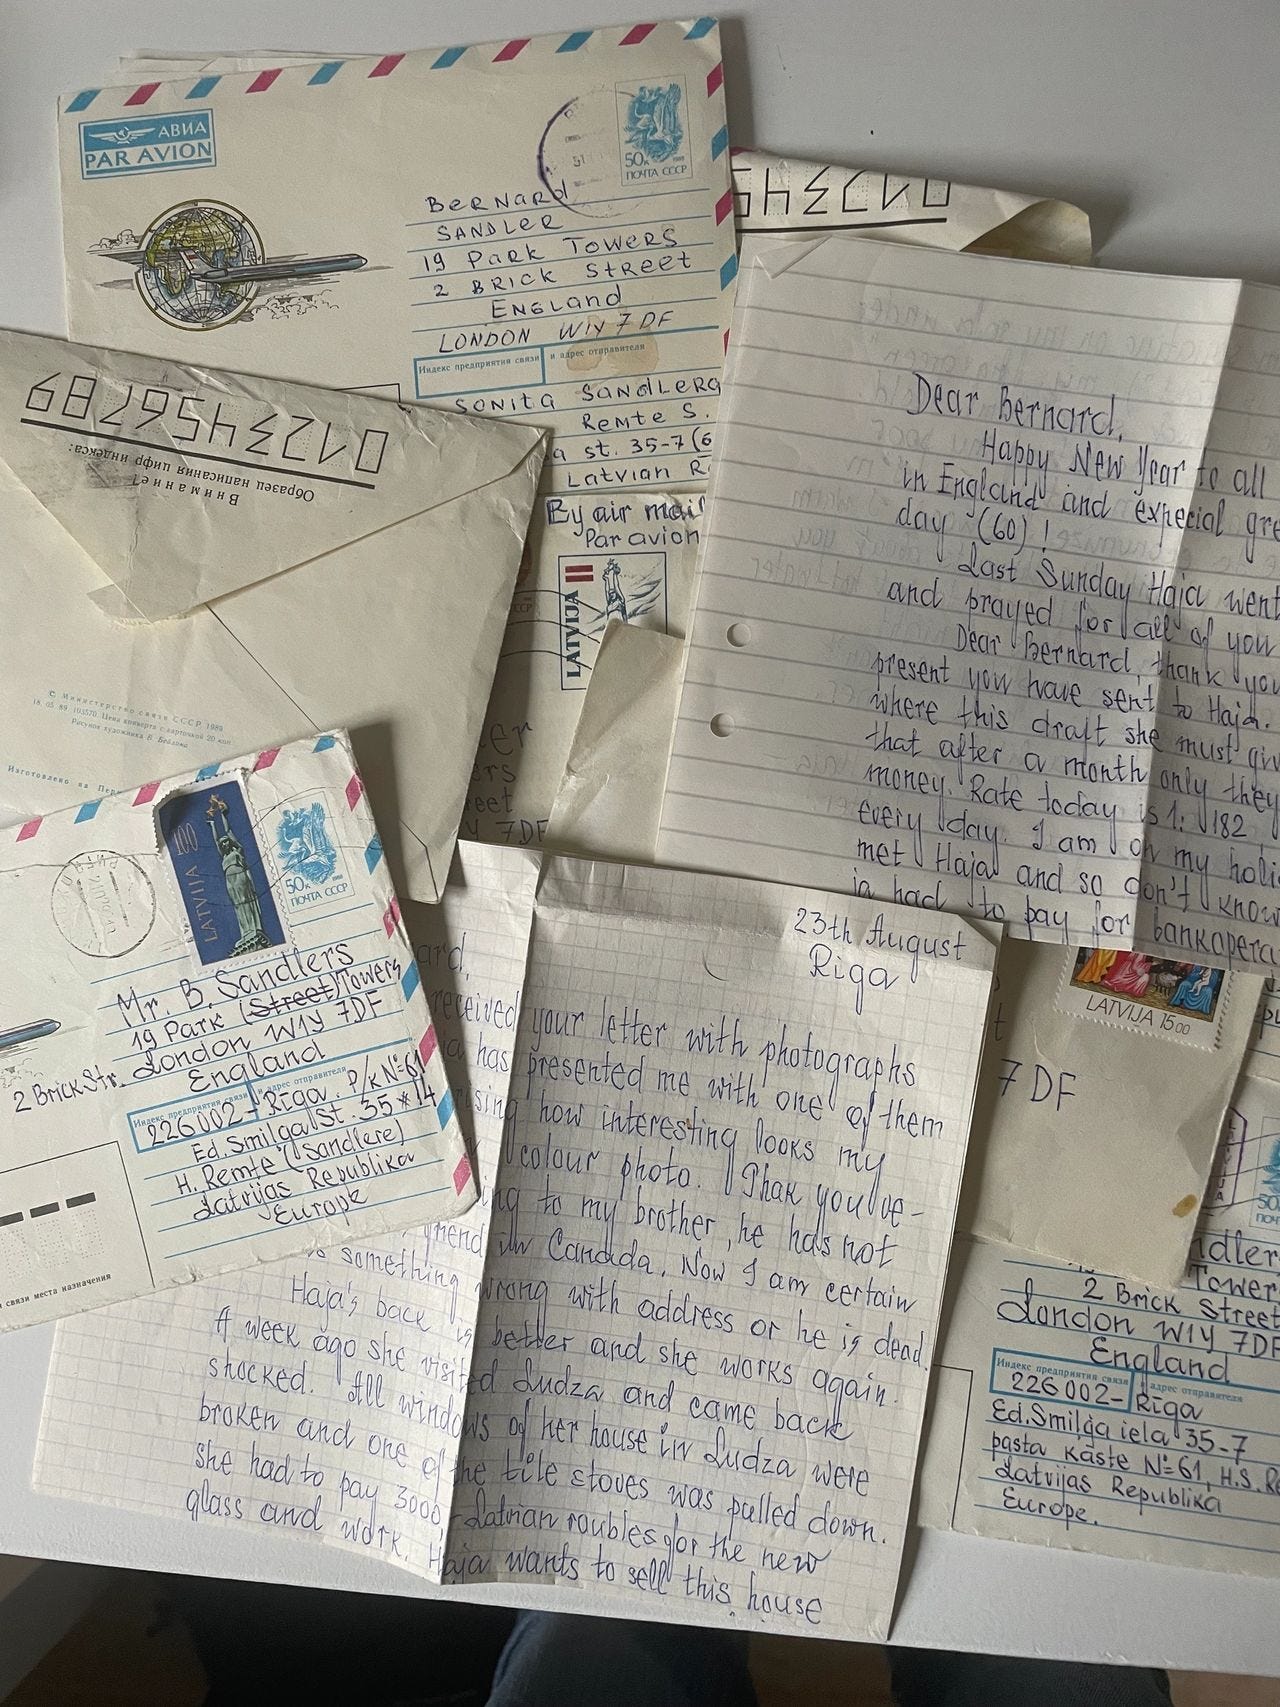 АВИА
PAR AVION
50к 1989
ПОЧТА СССР
BERNARD
SANDLER
19 PARK TOWERS
2 BRICK STREET
ENGLAND
LONDON W1Y 7DF
Индекс предприятия связи и адрес отправителя
SONITA SANDLERA
Remte S.
a st. 35-7 (6
Latvian R
0123456789
Образец написания цифр индекса:
Внимание!
© Министерство связи СССР. 1989
18. 05. 89. 103570. Цена конверта с карточкой 20 коп.
Рисунок художника В. Бейлина
Изготовлено на Перм
012345
By air mail
Par avion
LATVIJA
er
ers
eet
Y 7DF
Dear Bernard,
Happy New Year to all
in England and expecial gre
day (60)!
Last Sunday Haja went
and prayed for all of you
Dear Bernard, thank you
present you have sent to Haja.
where this draft she must giv
that after a month only they
money. Rate today is 1: 182
every day. I am on my holi
met Haja and so don't know
ja had to pay for bankopera
LATVIJA 100
50к
ПОЧТА СССР
Mr. B. Sandlers
19 Park (Street) Towers
London W1Y 7DF
England
2 Brick Str.
Индекс предприятия связи и адрес отправителя
226002- Rīga. p/k №61
Ed. Smilga St. 35 * 14
H. Remte (Sandlere)
Latvijas Republika
Europe
связи места назначения
23th August
Rīga
ard,
received your letter with photographs
a has presented me with one of them
rising how interesting looks my
colour photo. Thak you ve-
ing to my brother, he has not
friend in Canada. Now I am certain
is something wrong with address or he is dead.
Haja's back is better and she works again.
A week ago she visited Ludza and came back
shocked. All windows of her house in Ludza were
broken and one of the tile stoves was pulled down.
she had to pay 3000,- Latvian roubles for the new
glass and work. Haja wants to sell this house
LATVIJA 15 00
7DF
50
ndler
Tower
2 Brick Street
London W1Y 7DF
England
Индекс предприятия связи и адрес отправителя
226002- Rīga
Ed. Smiļģa iela 35-7
pasta kaste №61, H.S. Re
Latvijas Republika
Europe.